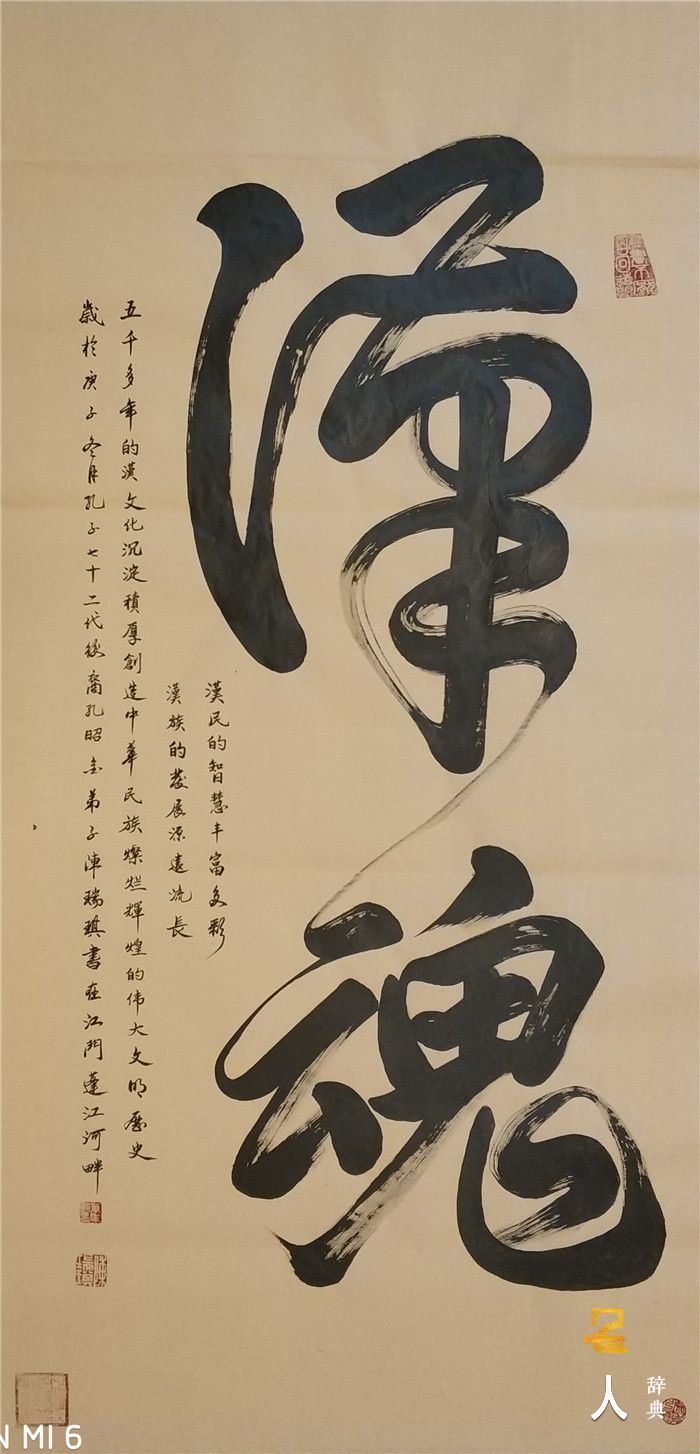 漢魂
漢民的智慧丰富多彩
漢族的發展源遠流長
五千多年的漢文化沉淀積厚創造中華民族燦烂輝煌的伟大文明歷史
歲於庚子冬月孔子七十二代後裔孔昭金弟子陳瑞琪書在江門蓬江河畔
名人
辞典
N MI 6